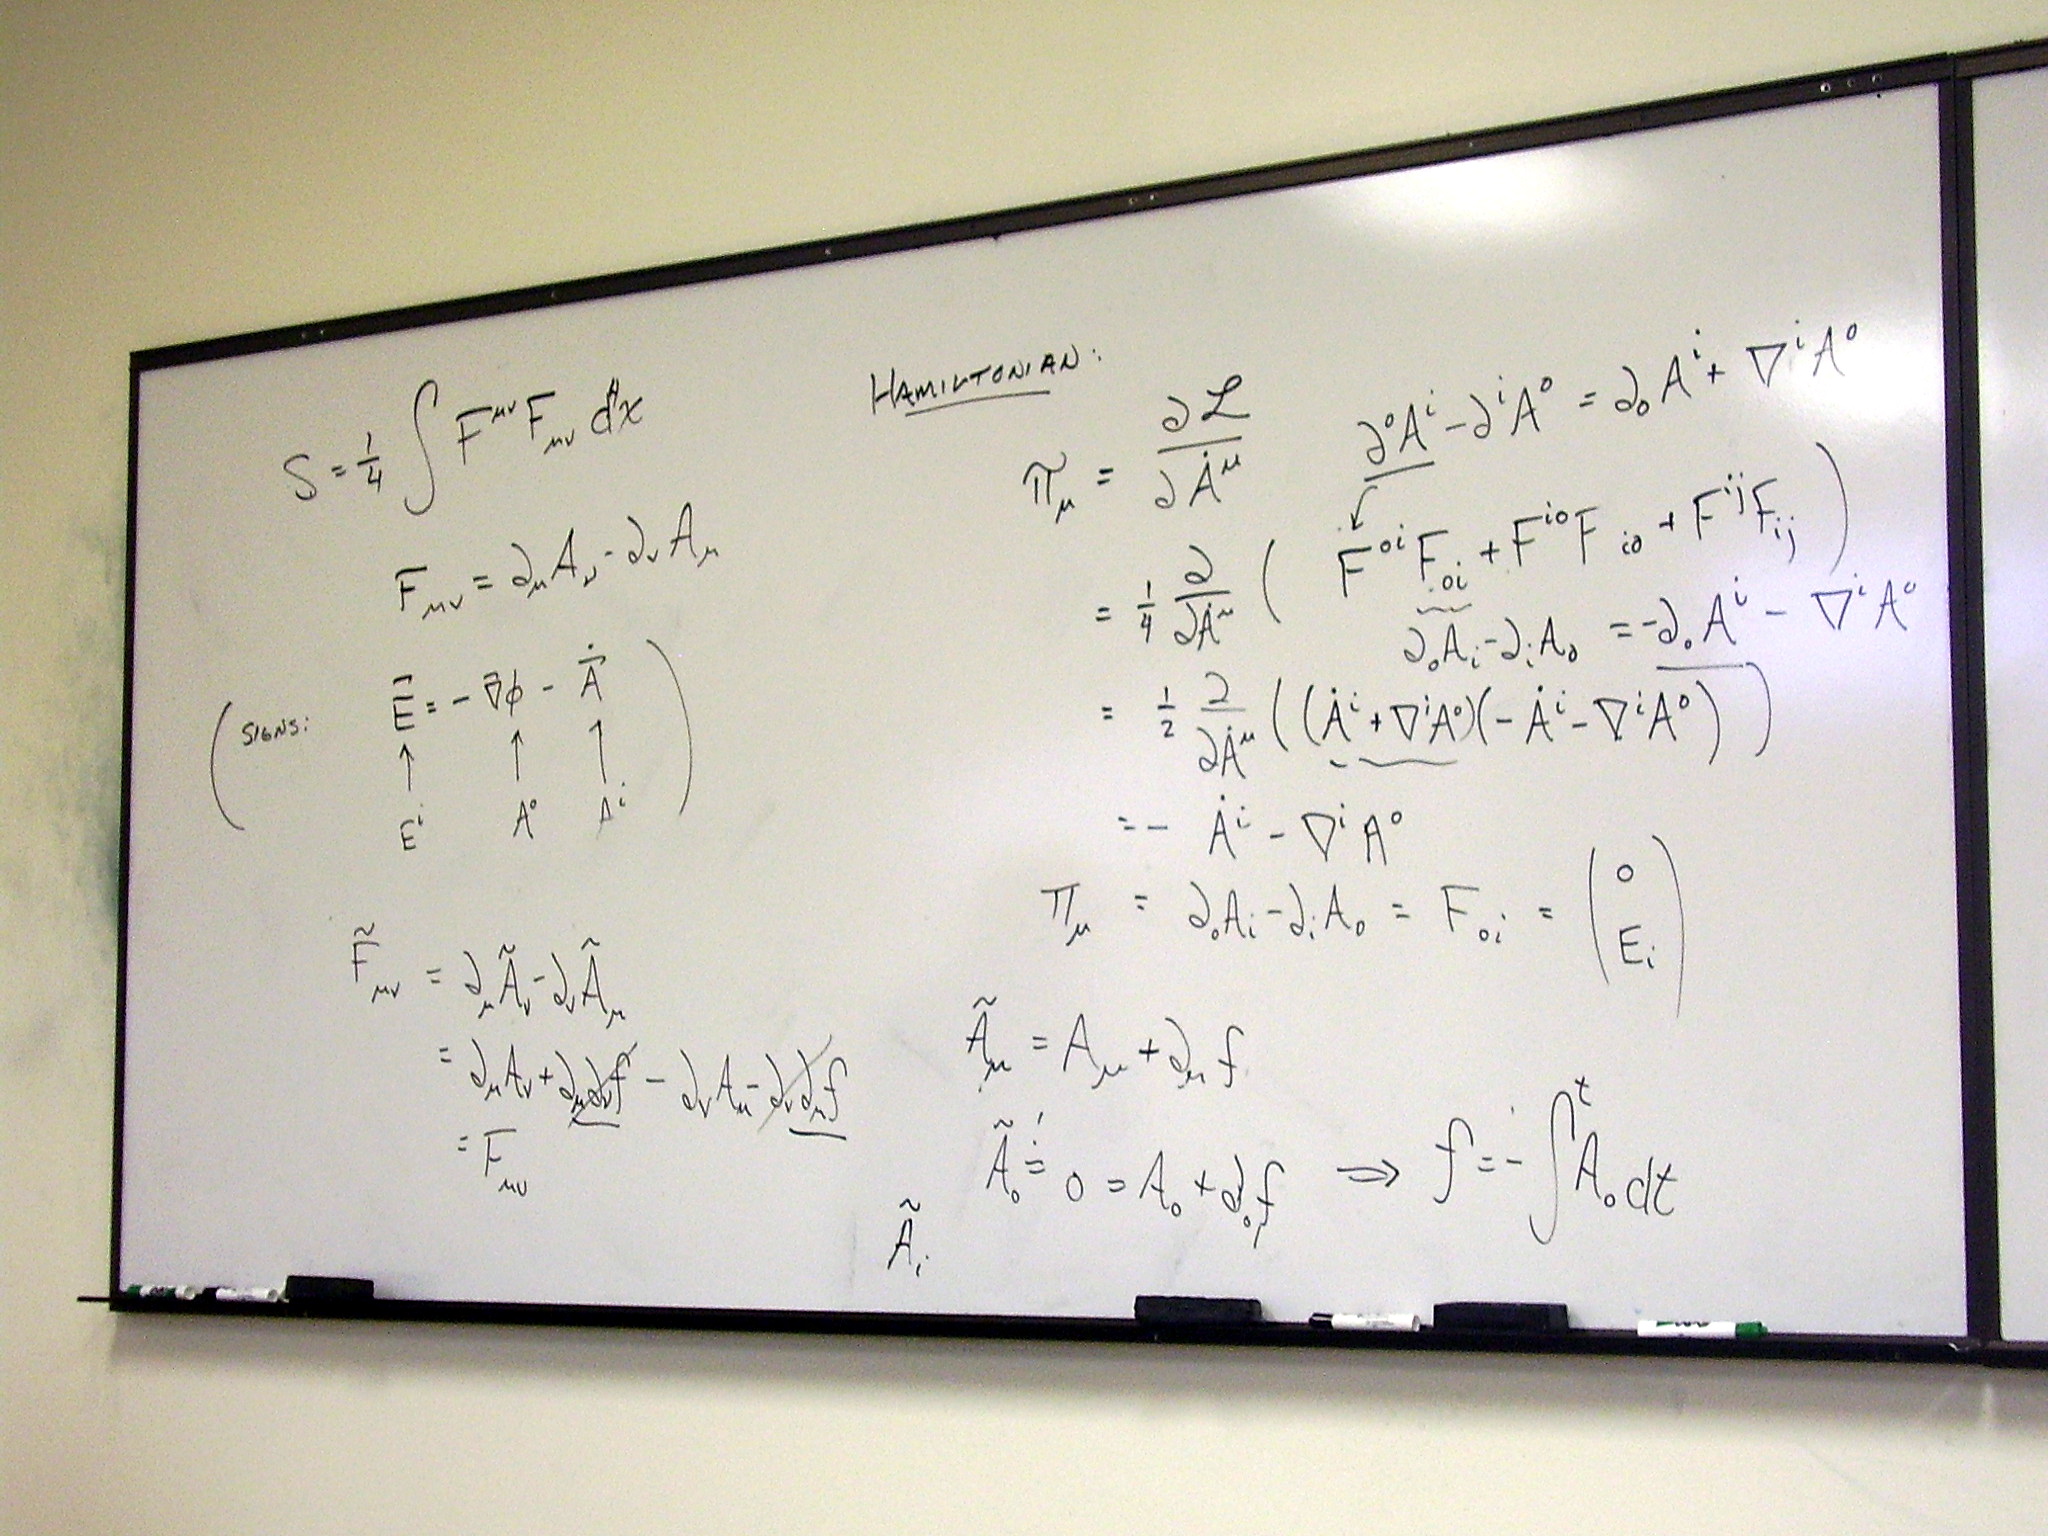 S = 1/4 ∫ F^{μν} F_{μν} d⁴x
F_{μν} = ∂_μ A_ν - ∂_ν A_μ
( SIGNS: E⃗ = - ∇⃗φ - Ȧ⃗ )
↑ ↑ ↑
E^i A^0 A^i
F̃_{μν} = ∂_μ Ã_ν - ∂_ν Ã_μ
= ∂_μ A_ν + ∂_μ ∂_ν f - ∂_ν A_μ - ∂_ν ∂_μ f
= F_{μν}
HAMILTONIAN:
π_μ = ∂ℒ / ∂Ȧ^μ
∂^0 A^i - ∂^i A^0 = ∂_0 A^i + ∇^i A^0
= 1/4 ∂/∂Ȧ^μ ( F^{0i} F_{0i} + F^{i0} F_{i0} + F^{ij} F_{ij} )
∂_0 A_i - ∂_i A_0 = -∂_0 A^i - ∇^i A^0
= 1/2 ∂/∂Ȧ^μ ( (Ȧ^i + ∇^i A^0)(- Ȧ^i - ∇^i A^0) )
= - Ȧ^i - ∇^i A^0
π_μ = ∂_0 A_i - ∂_i A_0 = F_{0i} = ( 0
E_i )
Ã_μ = A_μ + ∂_μ f
Ã_0 =! 0 = A_0 + ∂_0 f ⇒ f = - ∫^t A_0 dt
Ã_i